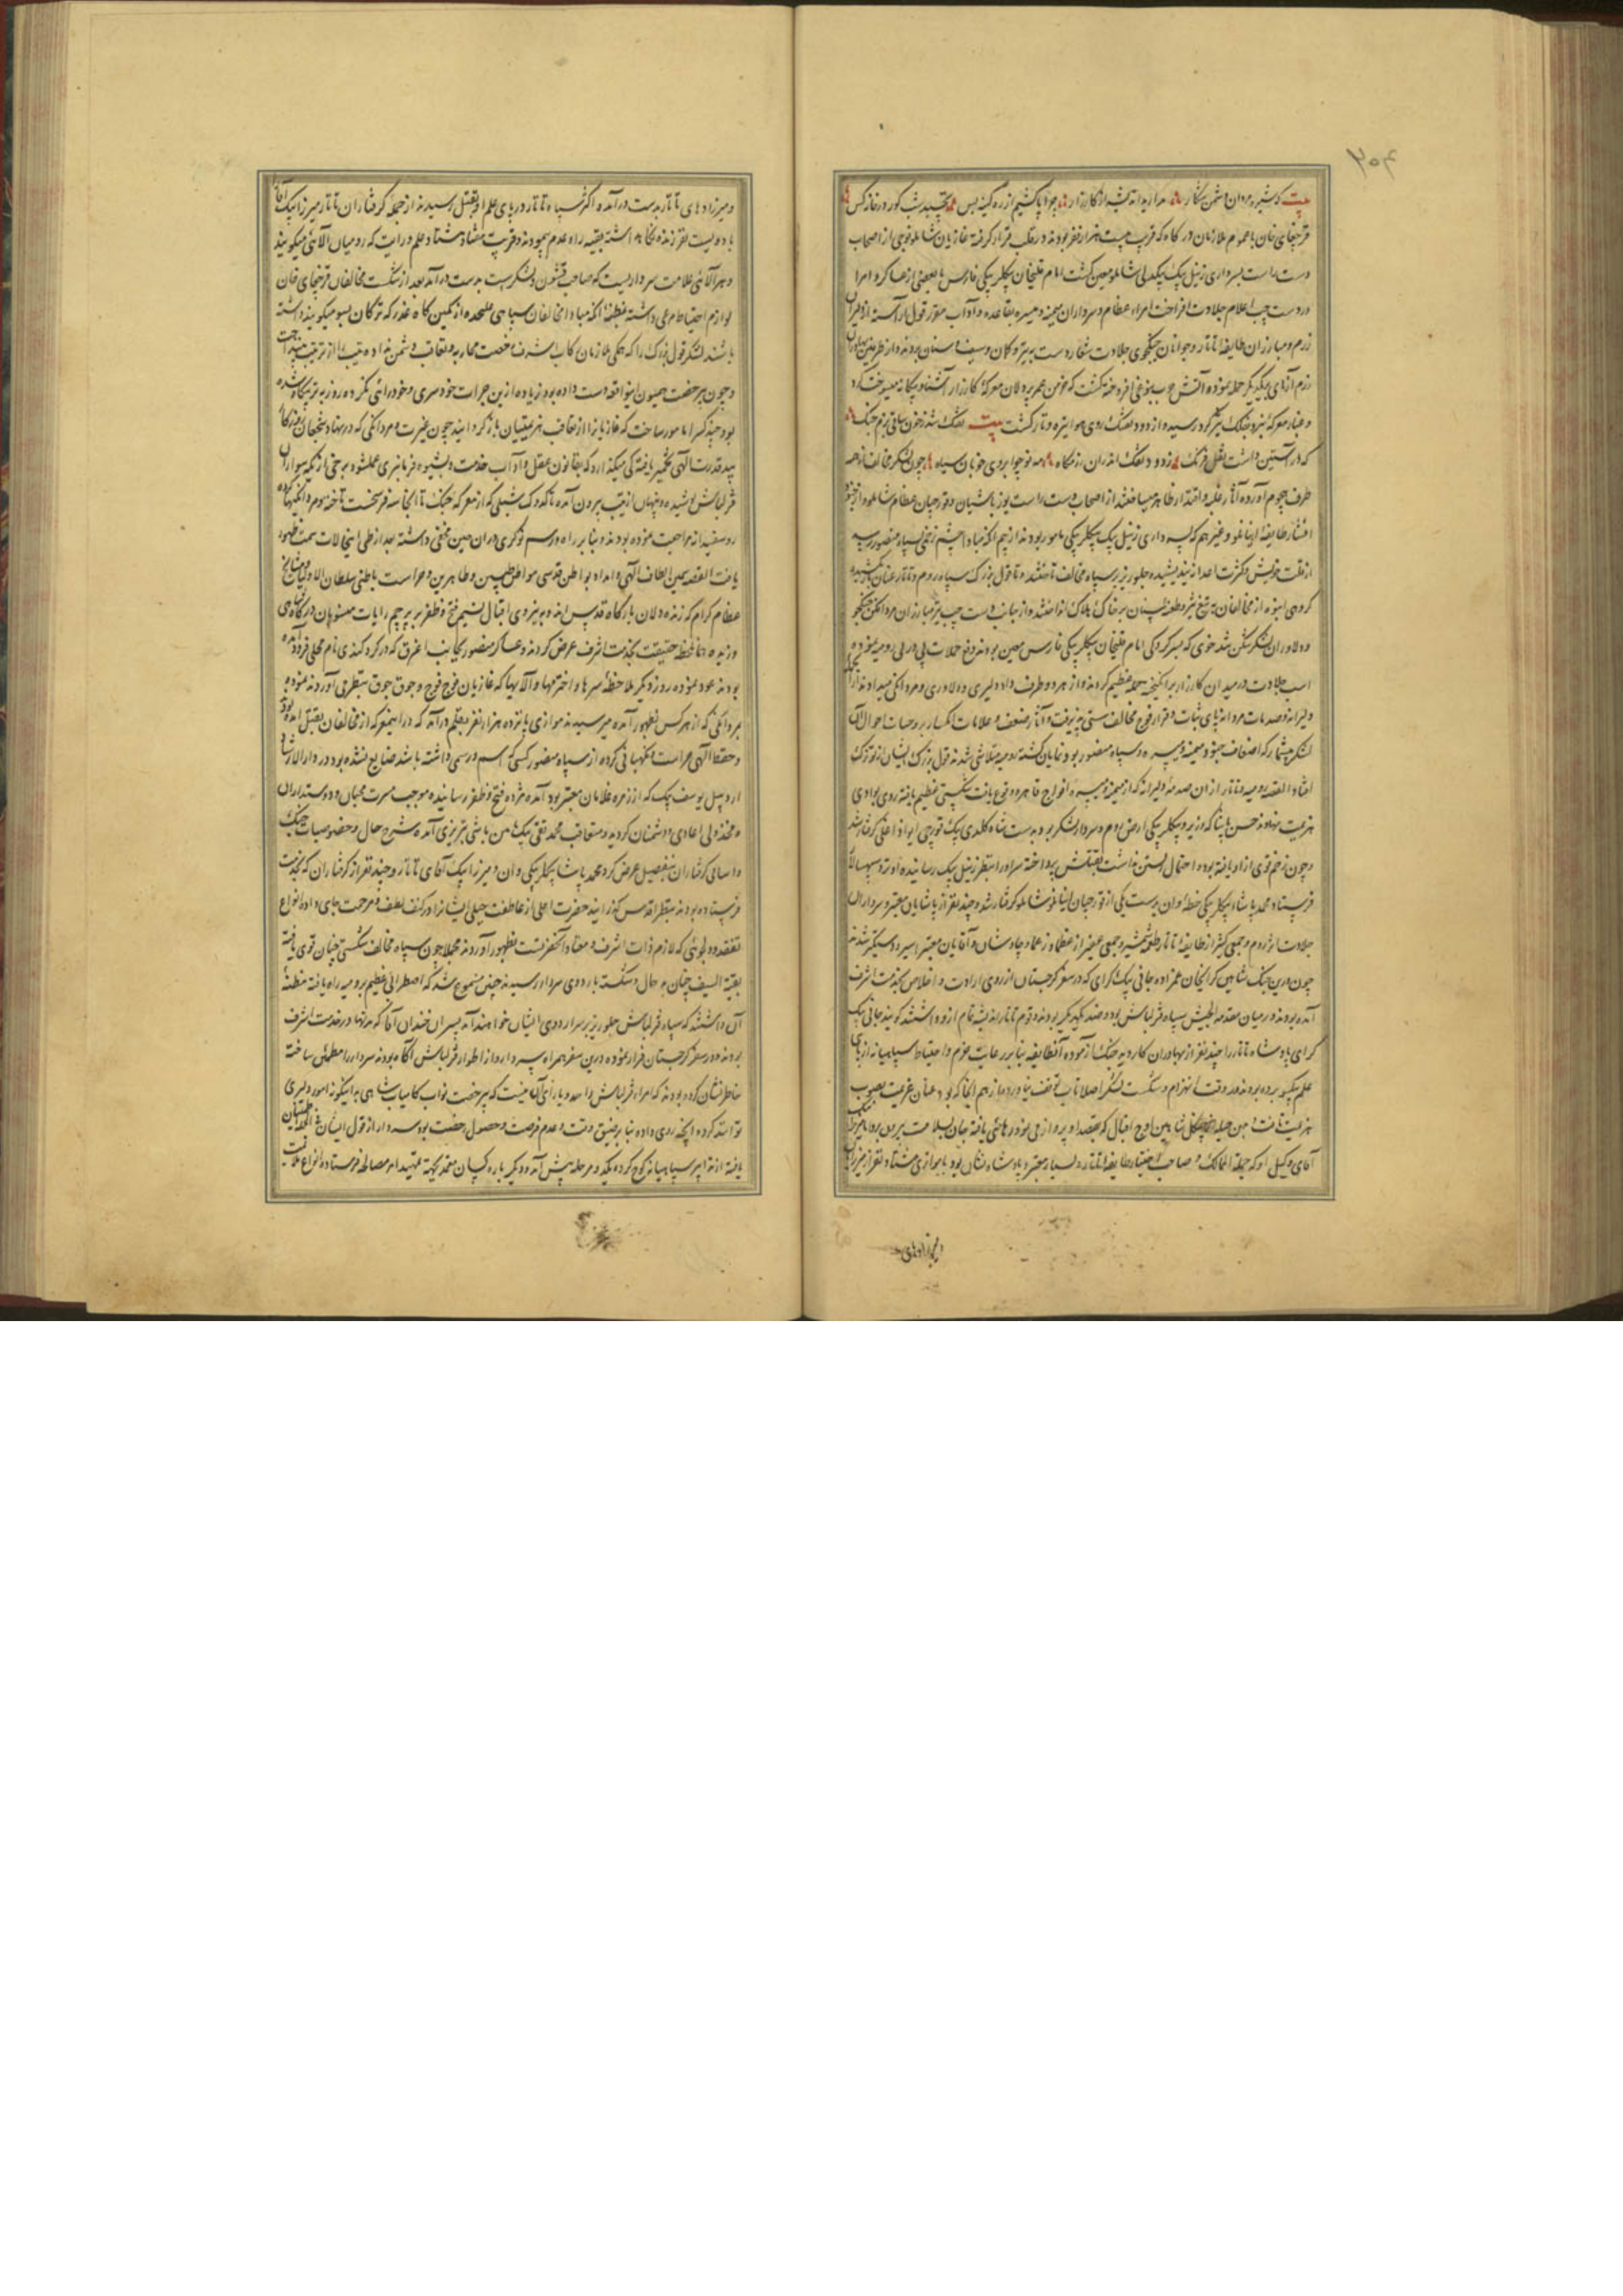 بیت که شیر مردان دشمن شکار مدارید اندیشه از کارزار چو پا کشیم از ره کینه پس نخسبد شب کور در خانه کس
قرچغای خان با عموم ملازمان درگاه که قریب بیست هزار نفر بودند در قلب قرار گرفته غازیان شاملو فوجی از اصحاب
دست راست بسرداری زینل بیک بیکدلی شاملو معین گشت امام قلیخان بیگلربیگی فارس با بعضی از عساکر و امرا
در دست چپ اعلام جلادت افراخت امراء عظام و سرداران میمنه و میسره بقاعده و آداب مقرر قول آراسته از دلیران
رزم و مبارزان طایفه تاتار و جوانان جنگجوی جلادت شعار دست به تیر و کمان و سیف و سنان بردند و از طرفین بهادران
رزم آزمای بیکدیگر حمله نموده آتش حرب بنوعی افروخته گشت که خرمن عمر پردلان معرکه کارزار آشنا و بیگانه میسوخت گرد
و غبار معرکه نبرد بفلک تیزگرد رسیده از دود تفنک روی هوا تیره و تار گشت بیت تفنک شد ز خون ساقی بزم جنگ
که در آستین داشت نقل فرنگ ز دود تفنک اندران رزمگاه چو ابروی خوبان سیاه چون لشکر مخالف از همه
طرف هجوم آورده آثار غلبه و اقتدار ظاهر میساختند از اصحاب دست راست یوز باشیان و قورچیان عظام شاملو و از جنود
افشار طایفه اینانلو و غیرهم که بسرداری زینل بیک بیگلربیگی مامور بودند از بیم آنکه مبادا چشم زخمی بسپاه منصور رسد
از قلت خویش و کثرت اعدا نیندیشیده جلوریز بر سپاه مخالف تاختند و تا قول بزرک سپاه روم و تاتار عنان نکشیده
گروهی انبوه از مخالفان به تیغ تیز و طعنه سنان بر خاک هلاک انداختند و از جانب دست چپ نیز مبارزان مرد افکن جنگجو
و دلاوران لشکر شکن تند خوی که بسرکردگی امام قلیخان بیگلربیگی فارس معین بودند دفع حملات پی در پی رومیه نموده
اسب جلادت در میدان کارزار برانگیخته حمله عظیم کردند و از هر دو طرف داد دلیری و دلاوری و مردانگی میدادند از
دلیرانه و صدمات مردانه پای ثبات و قرار فوج مخالف سستی پذیرفت و آثار ضعف و علامات انکسار بر وجنات احوال آن
لشکر بیشمار که اضعاف جنود میمنه و میسره سپاه منصور بود نمایان گشته رومیه متلاشی شدند قول بزرک ایشان نوزک
افتاد القصه رومیه و تاتار از آن صدمه دلیرانه که از میمنه و میسره افواج قاهره وقوع یافت شکستی عظیم یافته روی بوادی
هزیمت نهادند حسن پاشا که وزیر و بیگلربیگی ارض روم و سردار لشکر بود بدست شاه کلدی بیک قورچی ایواداغلی گرفتار شد
و چون زخم قوی از او یافته بود و احتمال زیستن نداشت بقتلش پرداخته سر او را بنظر زینل بیک رسانیده او نزد سپهسالار
فرستاد محمد پاشاء بیگلربیگی خطه وان بدست یکی از قورچیان اینانلو شاملو گرفتار شد و چند نفر از پاشایان معتبر و سرداران
جلادت اثر روم و جمعی کثیر از طایفه تاتار طعمه شمشیر و جمعی غفیر از عظما و زعما و چاوشان و آقایان معتبر اسیر و دستگیر شدند
چون درین جنگ شاهین گرایخان عمزاده جانی بیک گرای که در سفر گرجستان از روی ارادت و اخلاص بخدمت اشرف
آمده بود در میان مقدمة الجیش سپاه قزلباش بود و ضد یکدیگر بودند و قوم تاتار اندیشه تمام ازو داشتند گویند جانی بیک
گرای پادشاه تاتار را چند نفر از بهادران کار دیده جنگ آزموده آنطایفه بنا بر رعایت حزم و احتیاط سپاهیانه از پای
علم بیکسو برده بودند و در وقت انهزام و شکست لشکر اصلا تاب توقف نیاورده از هم آنجا که بود عنان عزیمت بصوب
هزیمت تافت و من حیله چنگل شاهین اوج اقبال که بقصد او پرواز می نمود رهائی یافته جان بسلامت بیرون برد و میرزا
آقای وکیل او که جملة الملک و صاحب اختیار طایفه تاتار و بسیار معتبر و پادشاه نشان بود با موازی هشتاد نفر از میرزایان
امیرزادهای
و میرزادهای تاتار بدست درآمد و اکثر سپاه تاتار در پای علم او بقتل رسیدند از جمله گرفتاران تاتار میرزا بیک آقا
با دویست نفر زنده نگاه داشته بقیه راه عدم پیمودند و قریب هفتاد هشتاد علم و رایت که رومیان آلای میگویند
و هر آلای علامت سرداریست که صاحب قشون و لشکر است بدست درآمد بعد از شکست مخالفان قرچغای خان
لوازم احتیاط مرعی داشته بمظنه آنکه مبادا مخالفان سپاهی علیحده از کمین گاه غدر که ترکان بسو میگویند داشته
باشند لشکر قول بزرک را که همگی ملازمان رکاب اشرف رخصت محاربه و تعاقب دشمن نداده تیپ را از ترتیب نینداخت
و چون بیرخصت همیون اینواقعه دست داده بود زیاده ازین جرات خودسری و خودرائی نکرده روز به نزدیک شده
بود چند کس را مامور ساخت که غازیانرا از تعاقب هزیمتیان بازگردانیدند چون غیرت و مردانگی که در نهاد شجعان روزگار
بید قدرت الهی تخمیر یافته کی میگذارد که بقانون عقل و آداب خدمت دلشیوه فرمانبری عملشود برخی از یکه سواران
قزلباش پوشیده و پنهان از تیپ بیرون آمده تا کدوک شبلی که از معرکه جنک تا آنجا سه فرسخست تاخته و مردانگیها کرده
رو سفیدانه مراجعت نموده بودند و بنا بر راه و رسم نوکری در آن حین مخفی داشته بعد از طی اینحالات سمت ظهور
یافت القصه بیمن الطاف الهی و امداد بواطن قدسی مواطن طیبین و طاهرین و حراست باطنی سلطان الاولیا و مشایخ
عظام کرام که زنده دلان بارگاه قدس اند و به نیروی اقبال نسیم فتح و ظفر بر پرچم رایات منسوبان درگاه شاهی
وزیده حقیقت بخدمت اشرف عرض کردند و عساکر منصور بجانب اغرق که در کرد کندی نام محلی فرود آمده
بودند عود نموده روز دیگر ملاحظه سرها و اخترمها و آلایها که غازیان فوج فوج و جوق جوق بنظر می آوردند نموده
مردانگی که از هر کس بظهور آمده میرسیدند موازی پانزده هزار نفر بقلم درآمد که در اینمعرکه از مخالفان بقتل آمده بود
و حفظ الهی حراست و نگهبانی کرده از سپاه منصور کسی که اسم و رسمی داشته باشد ضایع نشده بود در دارالارشاد
اردبیل یوسف بیک که از زمره غلامان معتبر بود آمده مژده فتح و ظفر رسانیده موجب مسرت محبان و دوستداران
و مخذولی اعادی و دشمنان گردید و متعاقب محمد تقی بیک مین باشی تبریزی آمده شرح حال و خصوصیات جنگ
و اسامی گرفتاران بتفصیل عرض کرد محمد پاشا بیگلربیگی وان و میرزا بیک آقای تاتار و چند نفر از گرفتاران که بخدمت
فرستاده بودند بنظر اقدس گذرانید حضرت اعلی از عاطفت جبلی ایشانرا در کنف لطف و مرحمت جای داده انواع
تفقد و دلجوئی که لازم ذات اشرف و معتاد آنحضرتست بظهور آوردند مجملا چون سپاه مخالف شکستی چنان قوی یافته
بقیة السیف چنان بد حال و شکسته باردوی سردار رسیدند چنین مسموع شد که اضطرابی عظیم برومیه راه یافته مظنه
آن داشتند که سپاه قزلباش جلوریز بر سر اردوی ایشان خواهند آمد پسران خندان آقا که مدتها در خدمت اشرف
بودند و در سفر گرجستان فرار نموده درین سفر همراه سردار و از اطوار قزلباش آگاه بودند سردار را مطمئن ساخته
خاطرنشان کرده بودند که امراء قزلباش را حد و یارای آن نیست که بیرخصت نواب کامیاب شاهی به اینگونه امور دلیری
توانند کرد و آنچه روی داده بنا بر ضیق وقت و عدم فرصت و حصول رخصت بود سردار از قول ایشان اطمینان
یافته از تدابیر سپاهیانه کوچ کرده یکدو مرحله پیش آمد و دیگر باره کسان معتمد بجهت تمهید امر مصالحه فرستاده انواع ملایمت